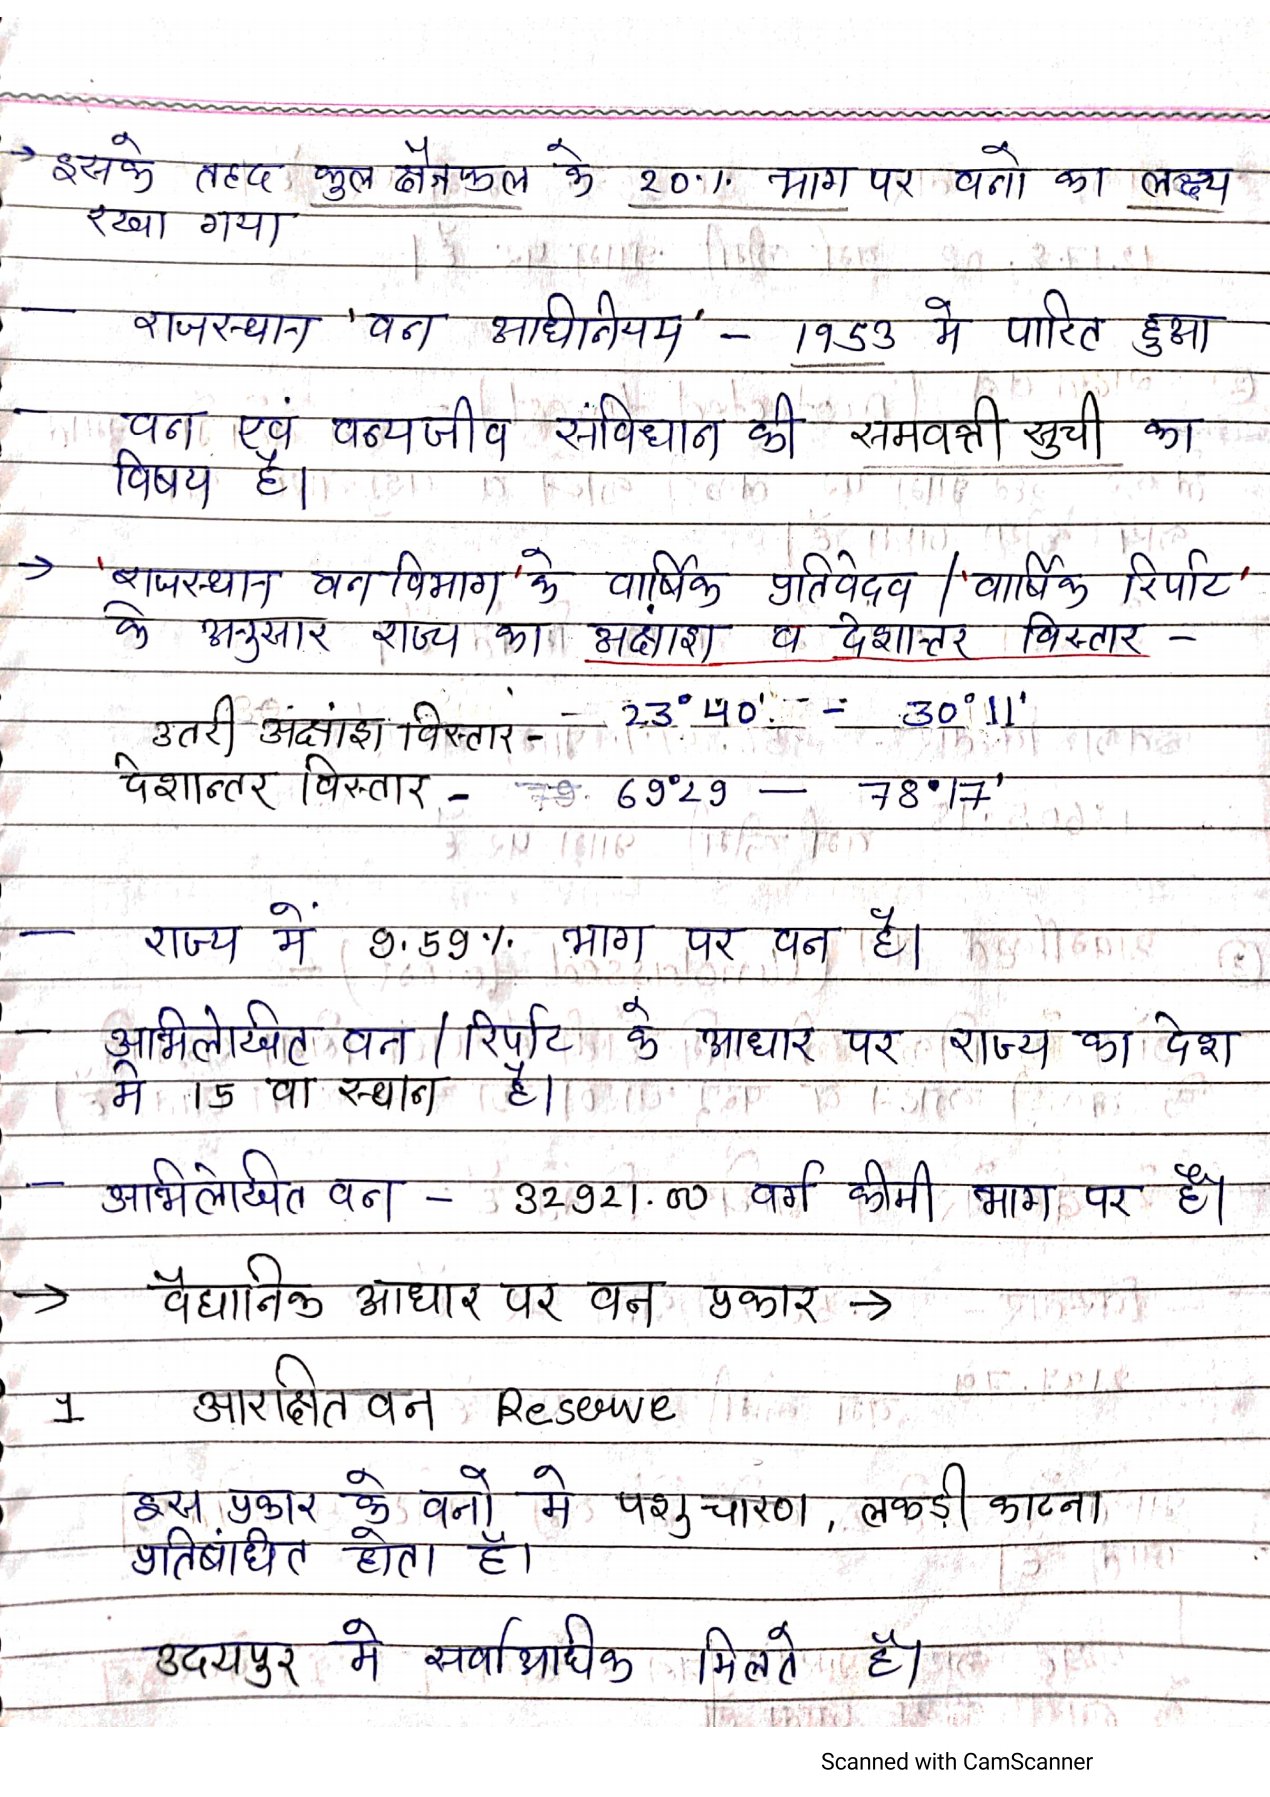 → इसके तहद कुल क्षैत्रफल के 20% भाग पर वनो का लक्ष्य
रखा गया
— राजस्थान 'वन अधिनियम' – 1953 मे पारित हुआ
— वन एवं वन्यजीव संविधान की समवर्ती सुची का
विषय है।
→ 'राजस्थान वन विभाग' के वार्षिक प्रतिवेदव / 'वार्षिक रिर्पाट'
के अनुसार राज्य का अक्षांश व देशान्तर विस्तार –
उतरी अंक्षांश विस्तार - – 23°40' – 30°11'
देशान्तर विस्तार - 69°29 — 78°17'
— राज्य में 9.59% भाग पर वन है।
— अभिलेखित वन / रिर्पाट के आधार पर राज्य का देश
मे 15 वा स्थान है।
— अभिलेखित वन – 32921.00 वर्ग कीमी भाग पर है।
→ वैधानिक आधार पर वन प्रकार →
1 आरक्षित वन Reserve
इस प्रकार के वनो मे पशुचारण, लकड़ी काटना
प्रतिबंधित होता है।
उदयपुर मे सर्वाअधिक मिलते है।
Scanned with CamScanner